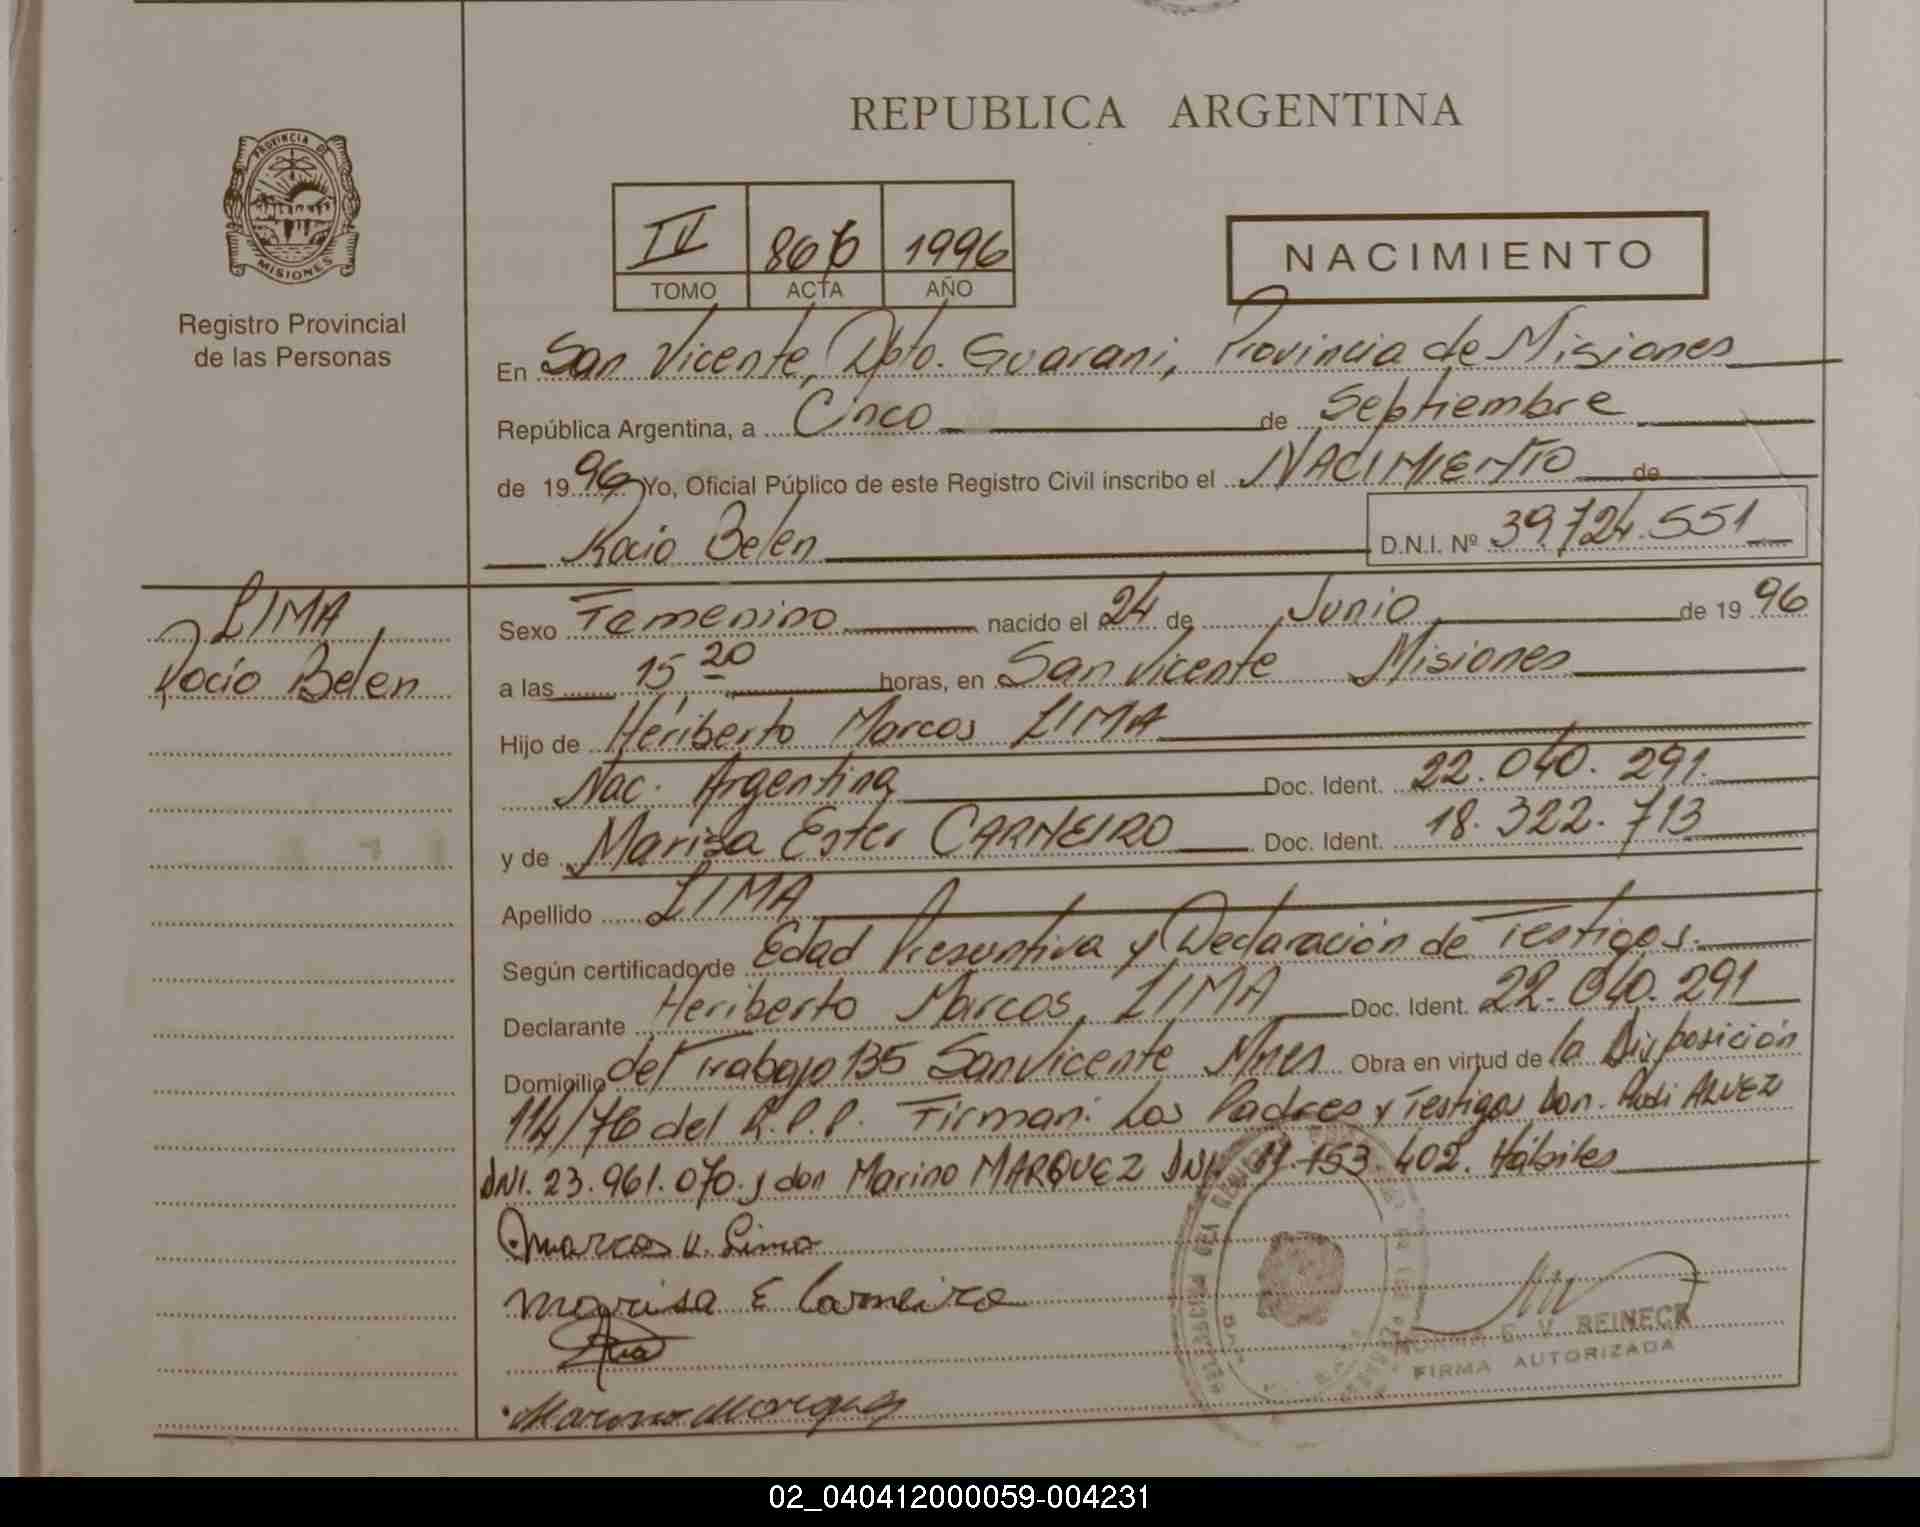 REPUBLICA ARGENTINA
PROVINCIA DE
MISIONES
Registro Provincial
de las Personas
IV 866 1996
TOMO ACTA AÑO
NACIMIENTO
En San Vicente, Dpto. Guarani, Provincia de Misiones
República Argentina, a Cinco de Septiembre
de 1996 Yo, Oficial Público de este Registro Civil inscribo el NACIMIENTO de
Rocio Belen D.N.I. Nº 39.724.551
LIMA
Rocio Belen
Sexo Femenino nacido el 24 de Junio de 1996
a las 15,20 horas, en San Vicente Misiones
Hijo de Heriberto Marcos LIMA
Nac. Argentina Doc. Ident. 22.040.291.
y de Marisa Ester CARNEIRO Doc. Ident. 18.322.713
Apellido LIMA
Según certificado de Edad Presuntiva y Declaración de Testigos.
Declarante Heriberto Marcos LIMA Doc. Ident. 22.040.291
Domicilio del Trabajo 135 San Vicente Mnes Obra en virtud de la Disposición
114/76 del R.P.P. Firman: Los Padres y Testigos Don. Rudi ALVEZ
DNI. 23.961.070. y don Marino MARQUEZ DNI. 11.153.402. Hábiles
Marcos H. Lima
Marisa E Carneiro
Marino Marquez
NORMA E. V. REINECK
FIRMA AUTORIZADA
02_040412000059-004231